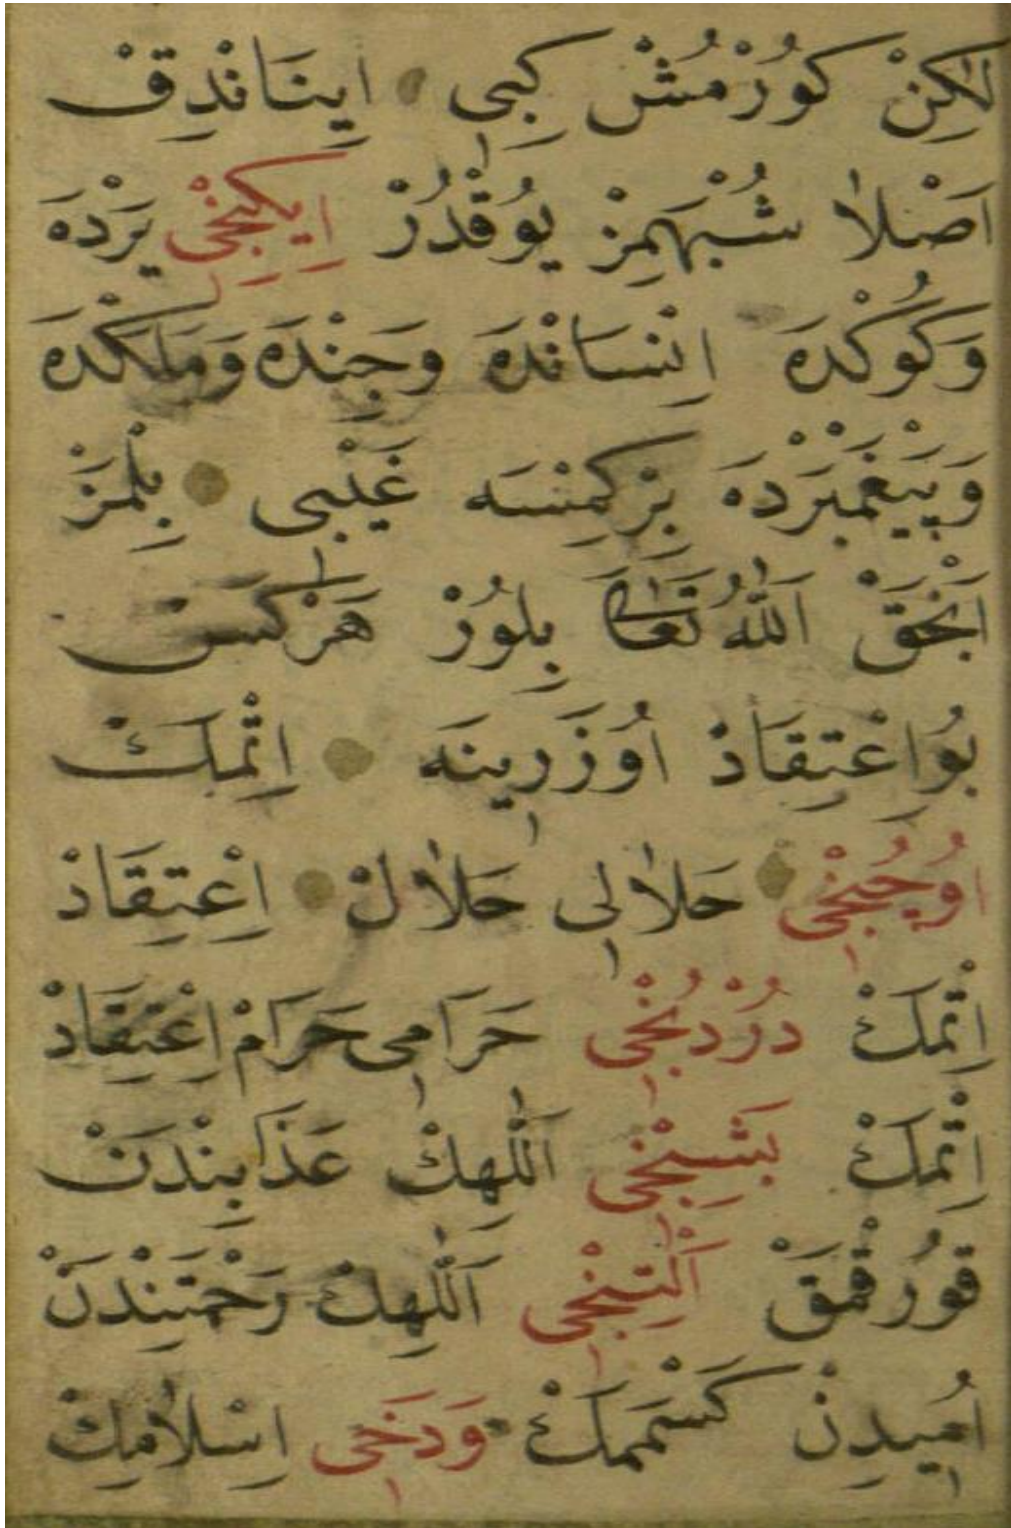 لٰكِنْ كُورْمُشْ كِبِى اِينَانْدِقْ
اَصْلاٰ شُبْهَمِزْ يُوقْدُرْ اِيكِنْجِى يَرْدَهَ
وَكُوكْدَهَ اِنْسَانْدَهَ وَجِنْدَهَ وَمَلَكْدَهَ
وَپَيْغَمْبَرْدَهَ بِرْكِمْسَه غَيْبِى بِلْمَزْ
اَنْجَقْ اَللّٰهُ تَعَالٰى بِلُورْ هَرْكَسْ
بُو اِعْتِقَادْ اُوزَرِينَه اِتْمَكْ
اُوچُنْجِى حَلاٰلِى حَلاٰلْ اِعْتِقَادْ
اِتْمَكْ دُرْدُنْجِى حَرَامِى حَرَامْ اِعْتِقَادْ
اِتْمَكْ بَشِنْجِى اَللّٰهِكْ عَذَابِنْدَنْ
قُورْقْمَقْ اَلْتِنْجِى اَللّٰهِكْ رَحْمَتِنْدَنْ
اُمِيدِنْ كَسْمَمَكْ وَدَخِى اِسْلاٰمِكْ